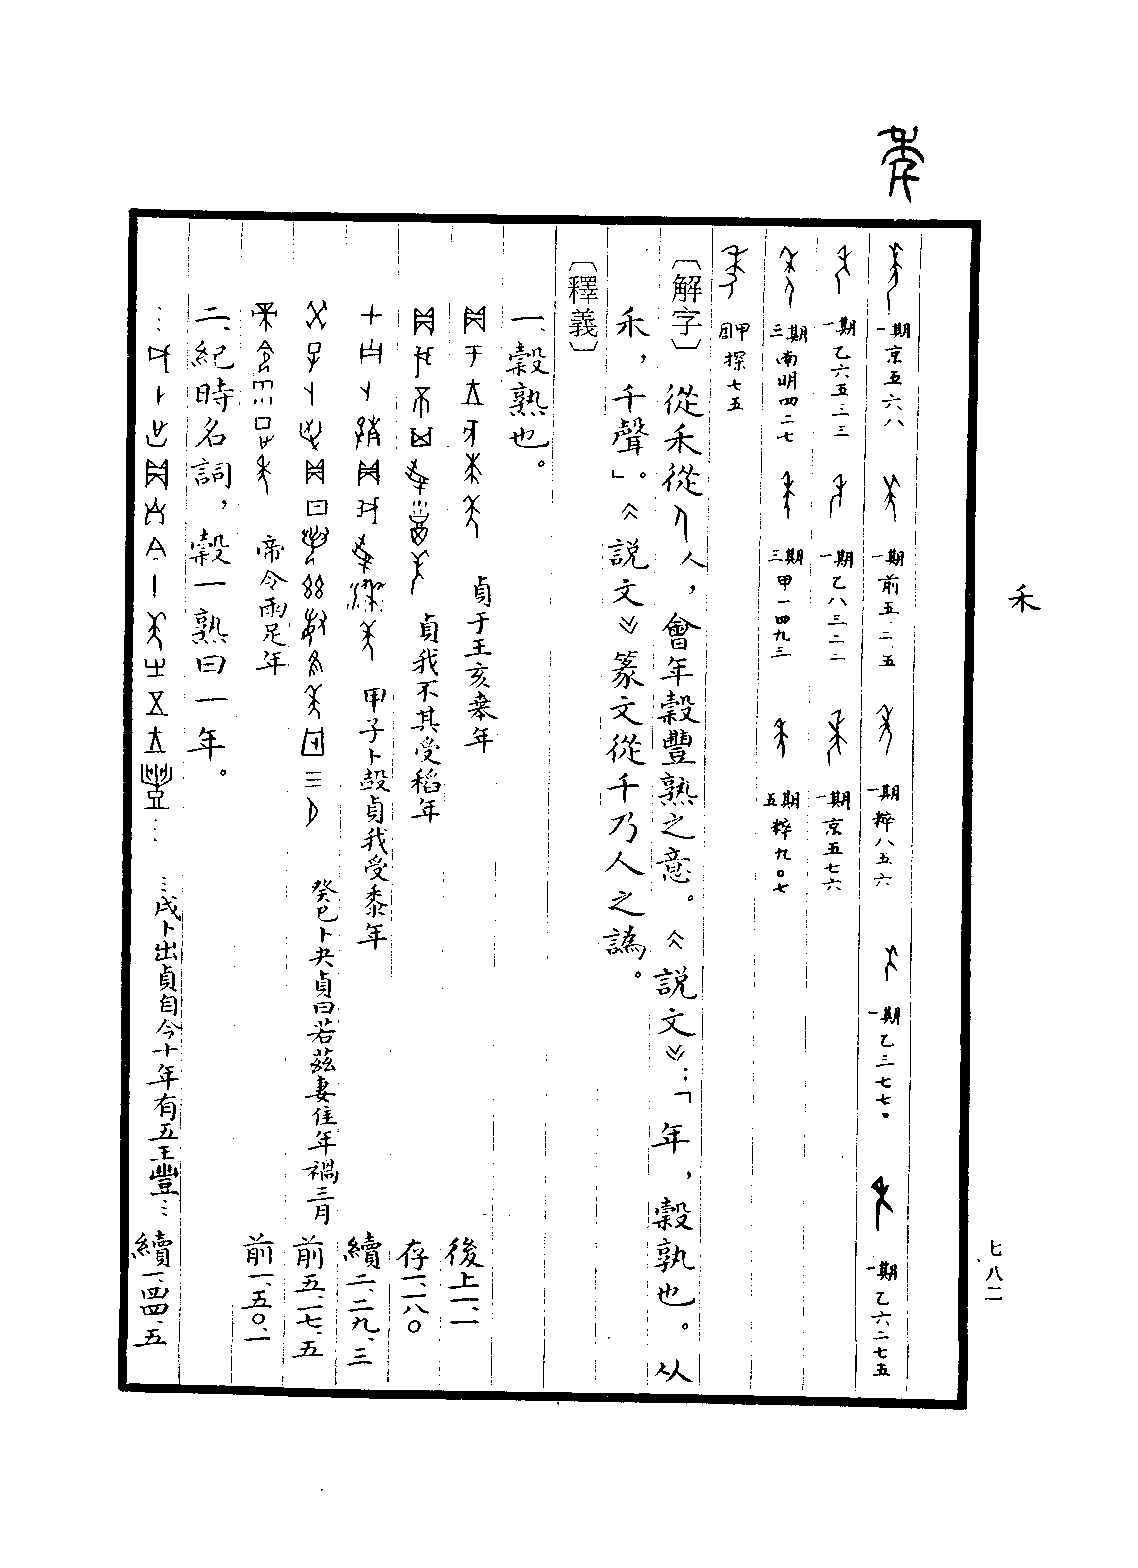 禾
七八二
一期 京五六八
一期 前五·二·五
一期 粹八五六
一期 乙三七七〇
一期 乙六二七五
一期 乙六五三三
一期 乙八三二二
一期 京五七六
三期 南明四二七
三期 甲一四九三
五期 粹九〇七
周甲 探七五
〔解字〕從禾從人,會年穀豐熟之意。《說文》:「年,穀孰也。从
禾,千聲。」《說文》篆文從千乃人之譌。
〔釋義〕
一、穀熟也。
貞于王亥𠦪年 後上一、一
貞我不其受稻年 存一、一八〇
甲子卜㱿貞我受黍年 續二、二九、三
癸巳卜央貞曰若茲妻隹年禍三月 前五、一七、五
帝令雨足年 前一、五〇、一
二、紀時名詞,穀一熟曰一年。
…戌卜出貞自今十年有五王豐… 續一、四四、五